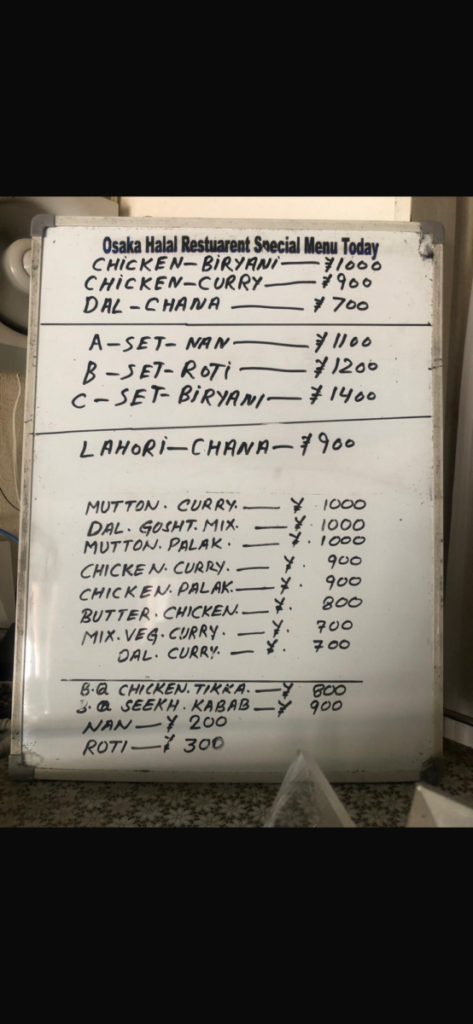 Osaka Halal Restuarent Special Menu Today
CHICKEN-BIRYANI — ¥1000
CHICKEN-CURRY — ¥900
DAL-CHANA — ¥700
A-SET-NAN — ¥1100
B-SET-ROTI — ¥1200
C-SET-BIRYANI — ¥1400
LAHORI-CHANA — ¥900
MUTTON. CURRY. — ¥. 1000
DAL. GOSHT. MIX. — ¥. 1000
MUTTON. PALAK. — ¥. 1000
CHICKEN. CURRY. — ¥. 900
CHICKEN. PALAK. — ¥. 900
BUTTER. CHICKEN. — ¥. 800
MIX. VEG. CURRY. — ¥. 700
DAL. CURRY. — ¥. 700
B.Q CHICKEN. TIKKA. — ¥ 800
B.Q SEEKH. KABAB — ¥ 900
NAN — ¥ 200
ROTI — ¥ 300